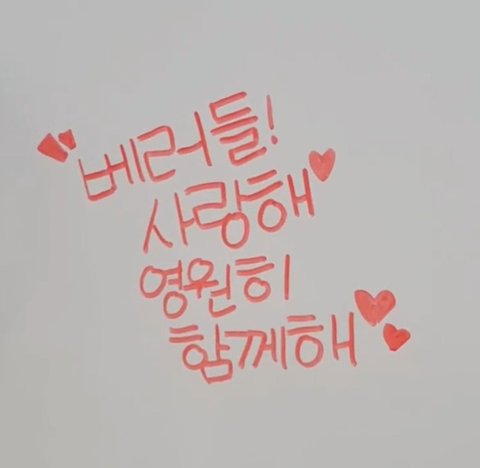 베러들!
사랑해
영원히
함께해